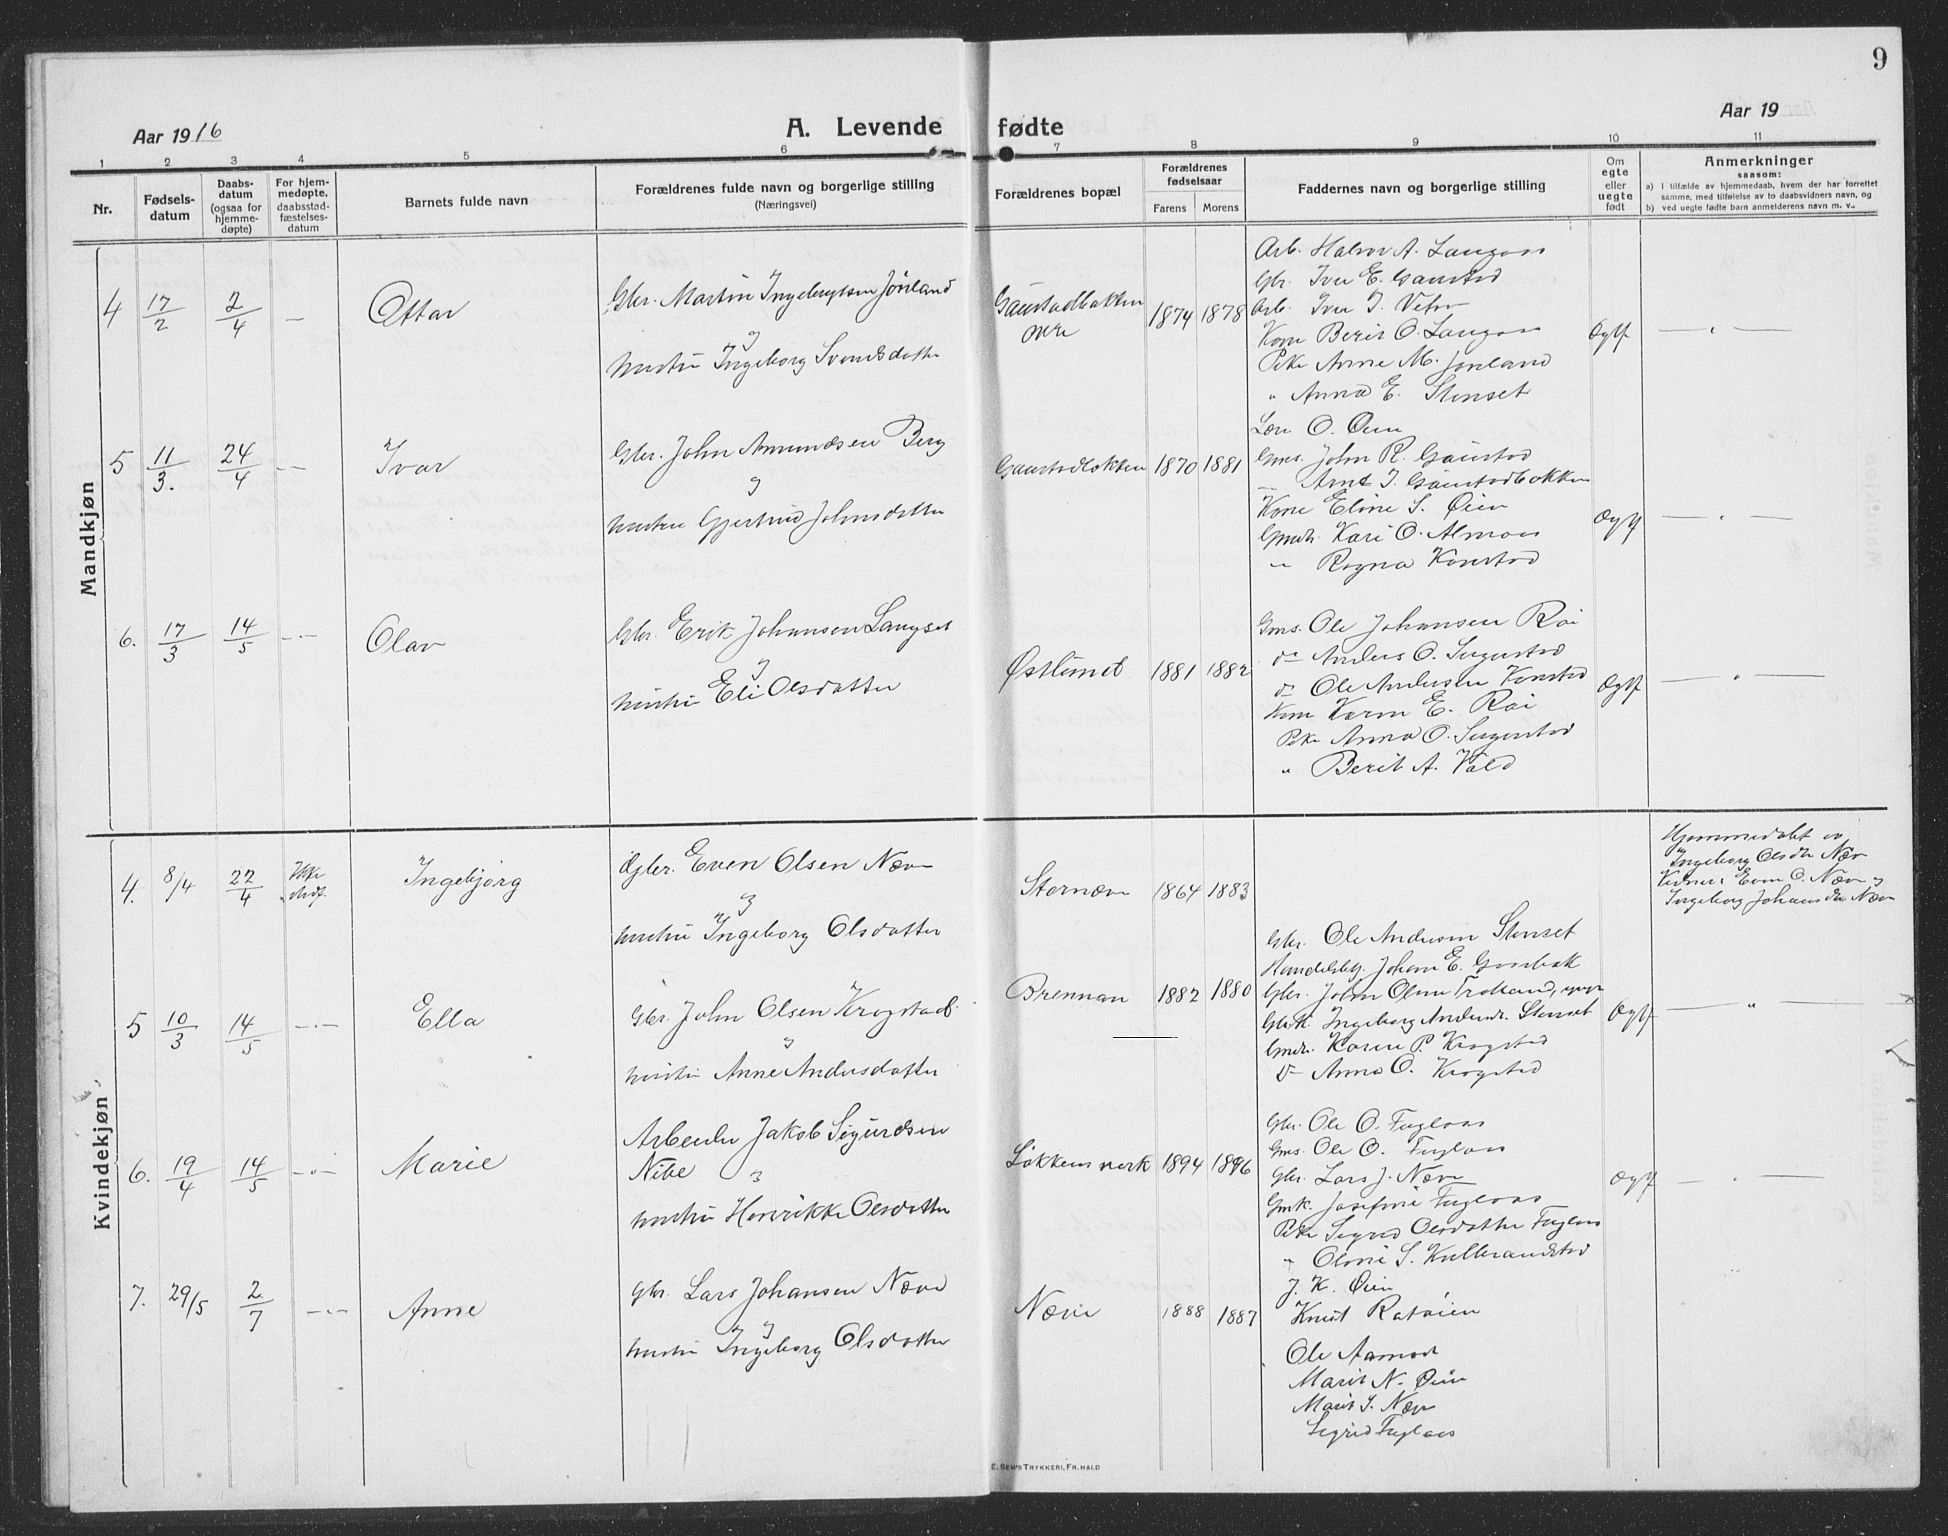 9
Aar 1916
A. Levende fødte
Aar 19
1 2 3 4 5 6 7 8 9 10 11
Nr.
Fødsels-
datum
Daabs-
datum
(ogsaa for
hjemme-
døpte)
For hjem-
medøpte,
daabsstad-
fæstelses-
datum
Barnets fulde navn
Forældrenes fulde navn og borgerlige stilling
(Næringsvei)
Forældrenes bopæl
Forældrenes
fødselsaar
Farens Morens
Faddernes navn og borgerlige stilling
Om
egte
eller
uegte
født
Anmerkninger
saasom:
a) i tilfælde av hjemmedaab, hvem der har forrettet
samme, med tilføielse av to daabsvidners navn, og
b) ved uegte fødte barn anmelderens navn m. v.
Mandkjøn
4 17/2 2/4 — Ottar
Gbr. Martin Ingebrigtsen Jönland
og
hustru Ingeborg Svendsdatter
Gaustadbakken
øvre
1874 1878
Arb. Halvor A. Langaas
Gbr. Iver E. Gaustad
Arb. Iver J.
Kone Berit O. Langaas
Pike Anne M. Jönland
" Anna E. Stenset
Ægtf
— " —
5 11/3. 24/4 — Ivar
Gbr. John Amundsen Berg
og
hustru Gjertrud Johnsdatter
Gaustadbakken 1870 1881
O. Øien
Gms. John R. Gaustad
— Arnt J. Gaustadbakken
Kone Eline S. Øien
Gmdt. Kari O. Almaas
— Ragna Konstad
Ægtf
— " —
6. 17/3 14/5 — Olav
Gbr. Erik Johansen Langset
og
hustru Eli Olsdatter
Østlund 1881 1882
Gms. Ole Johansen Röi
do Anders O.
do Ole Andersen Konstad
Kone Karen E. Röi
Pike Anna O.
" Berit A. Vold
Ægtf
— " —
Kvindekjøn
4. 8/4 22/4 Ikke Ingebjørg
Gbr. Even Olsen Næve
og
hustru Ingeborg Olsdatter
Stornæve 1864 1883
Hjemmedøbt av
Ingeborg Olsdtr Næve
Vidner: Even O. Næve og
Ingeborg Johansdtr Næve
5 10/3 14/5 — Ella
Gbr. John Olsen Krogstad
og
hustru Anne Andersdatter
Brennan 1882 1880
Gbr. Ole Andersen Stenset
Handelsbg. Johan E. Gombak
Gbr. John Olsen
Gbrk. Ingeborg Andersdr. Stenset
Gmdt. Karen P. Krogstad
do Anna O. Krogstad
Ægtf
— " —
6. 19/4 14/5 — Marie
Arbeider Jakob Sigurdsen
Nibe og
hustru Henrikke Olsdatter
Løkkens verk 1894 1896
Gbr. Ole O. Fuglaas
Gms. Ole O. Fuglaas
Gbr. Lars J. Næve
Gmk. Josefine Fuglaas
Pike Sigrid Olsdatter Fuglaas
" Oline S. Kulbrandstad
Ægtf
— " —
7. 29/5 2/7 — Anne
Gbr. Lars Johansen Næve
og
hustru Ingeborg Olsdatter
Næve 1888 1887
J. K. Øien
Knut Ratøien
Ole Aamot
Marit N. Øien
Marit J. Næve
Sigrid Fuglaas
E. SEM'S TRYKKERI, FR. HALD